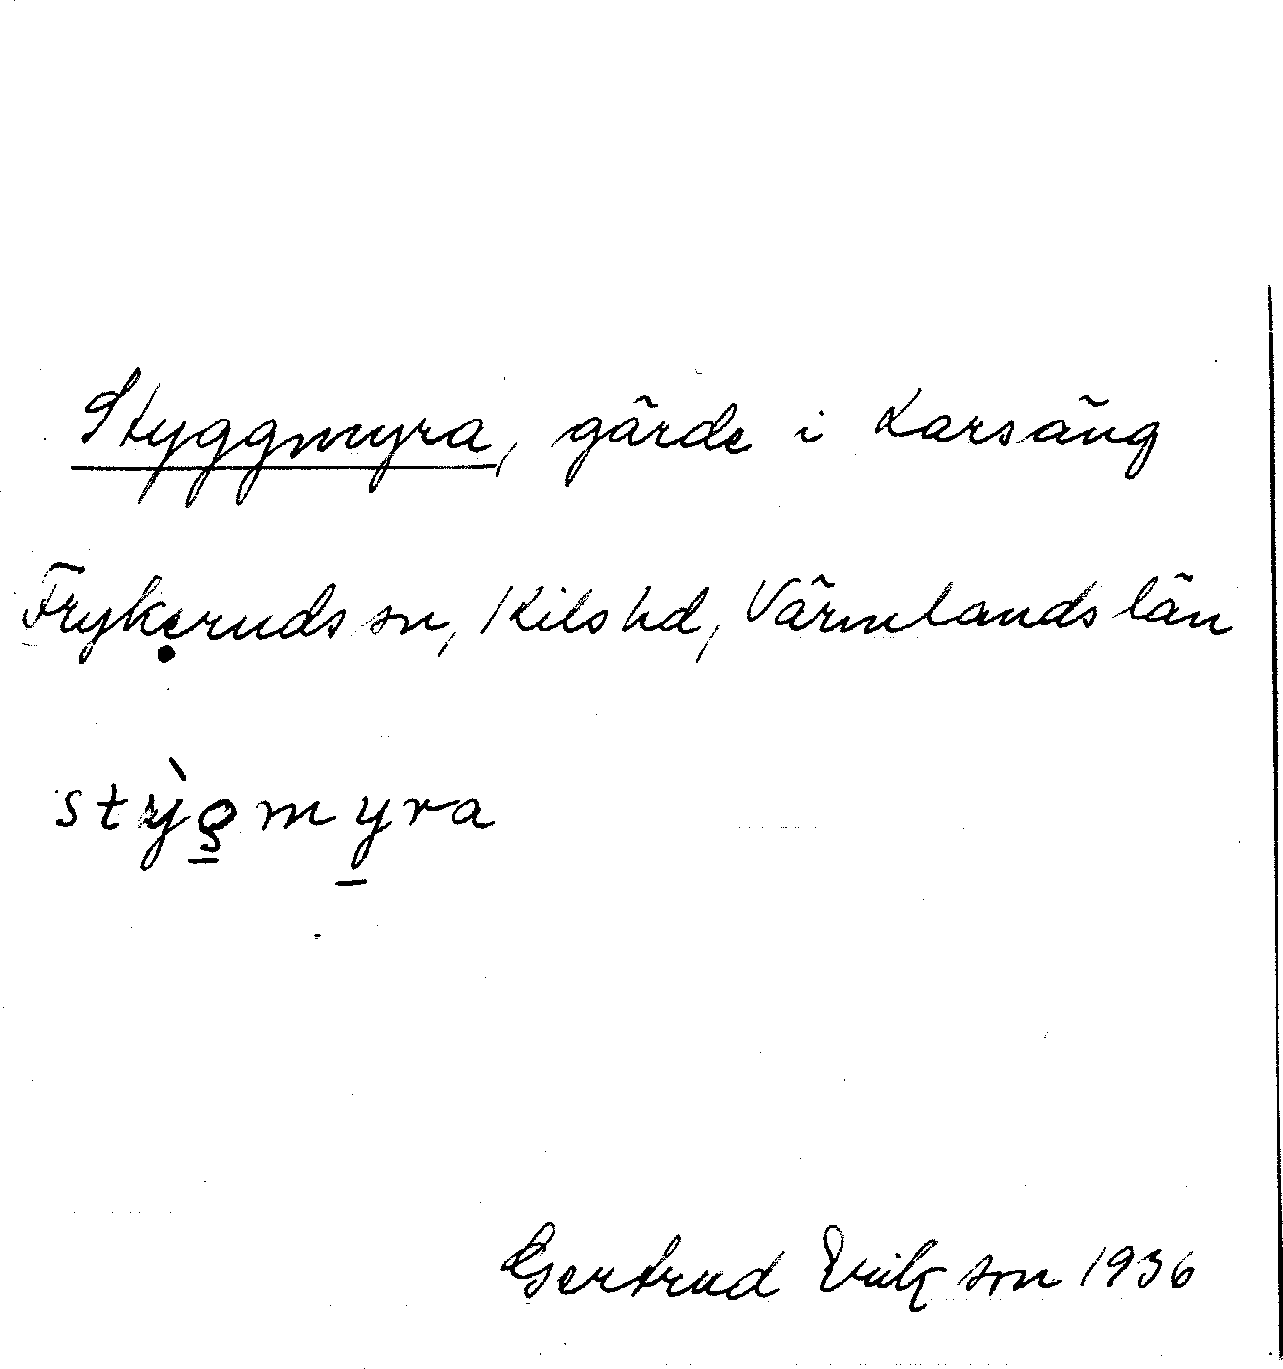 Styggmyra, gärde i Larsäng
Frykeruds sn, Kils hd, Värmlands län
stỳg̲my̲ra
Gertrud Erikson 1936